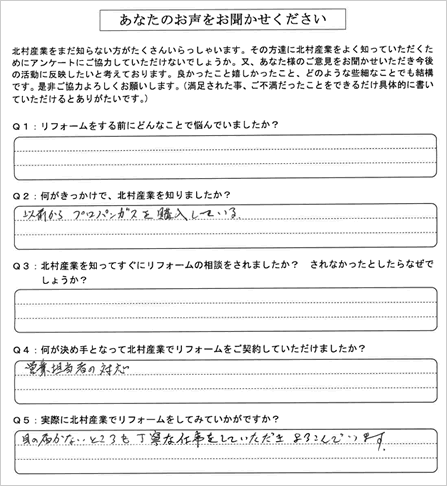 あなたのお声をお聞かせください
北村産業をまだ知らない方がたくさんいらっしゃいます。その方達に北村産業をよく知っていただくた
めにアンケートにご協力していただけないでしょうか。又、あなた様のご意見をお聞かせいただき今後
の活動に反映したいと考えております。良かったこと嬉しかったこと、どのような些細なことでも結構
です。是非ご協力よろしくお願いします。(満足された事、ご不満だったことをできるだけ具体的に書い
ていただけるとありがたいです。)
Q1:リフォームをする前にどんなことで悩んでいましたか?
Q2:何がきっかけで、北村産業を知りましたか?
以前から プロパンガスを購入している
Q3:北村産業を知ってすぐにリフォームの相談をされましたか? されなかったとしたらなぜで
しょうか?
Q4:何が決め手となって北村産業でリフォームをご契約していただけましたか?
営業担当者の対応
Q5:実際に北村産業でリフォームをしてみていかがですか?
目の届かないところも丁寧な仕事をしていただき よろこんでいます。